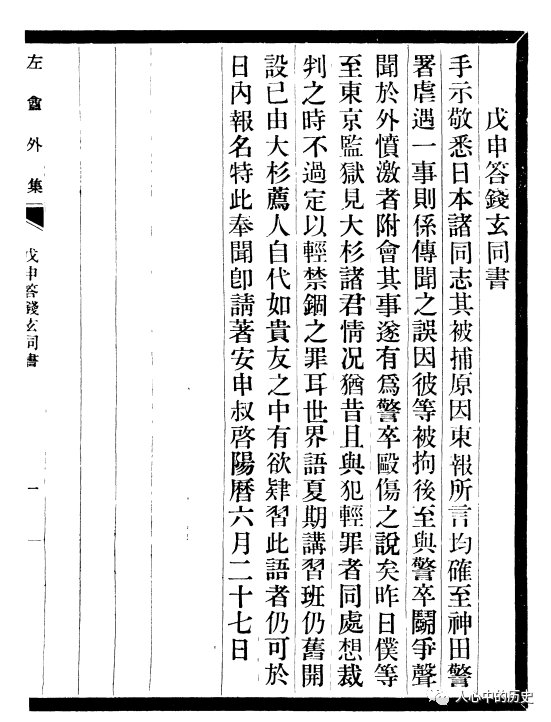 戊申答錢玄同書
手示敬悉日本諸同志其被捕原因東報所言均確至神田警
署虐遇一事則係傳聞之誤因彼等被拘後至與警卒鬭爭聲
聞於外憤激者附會其事遂有爲警卒毆傷之說矣昨日僕等
至東京監獄見大杉諸君情况猶昔且與犯輕罪者同處想裁
判之時不過定以輕禁錮之罪耳世界語夏期講習班仍舊開
設已由大杉薦人自代如貴友之中有欲肄習此語者仍可於
日內報名特此奉聞卽請著安申叔啓陽曆六月二十七日
左盦外集
戊申答錢玄同書
一
人心中的历史